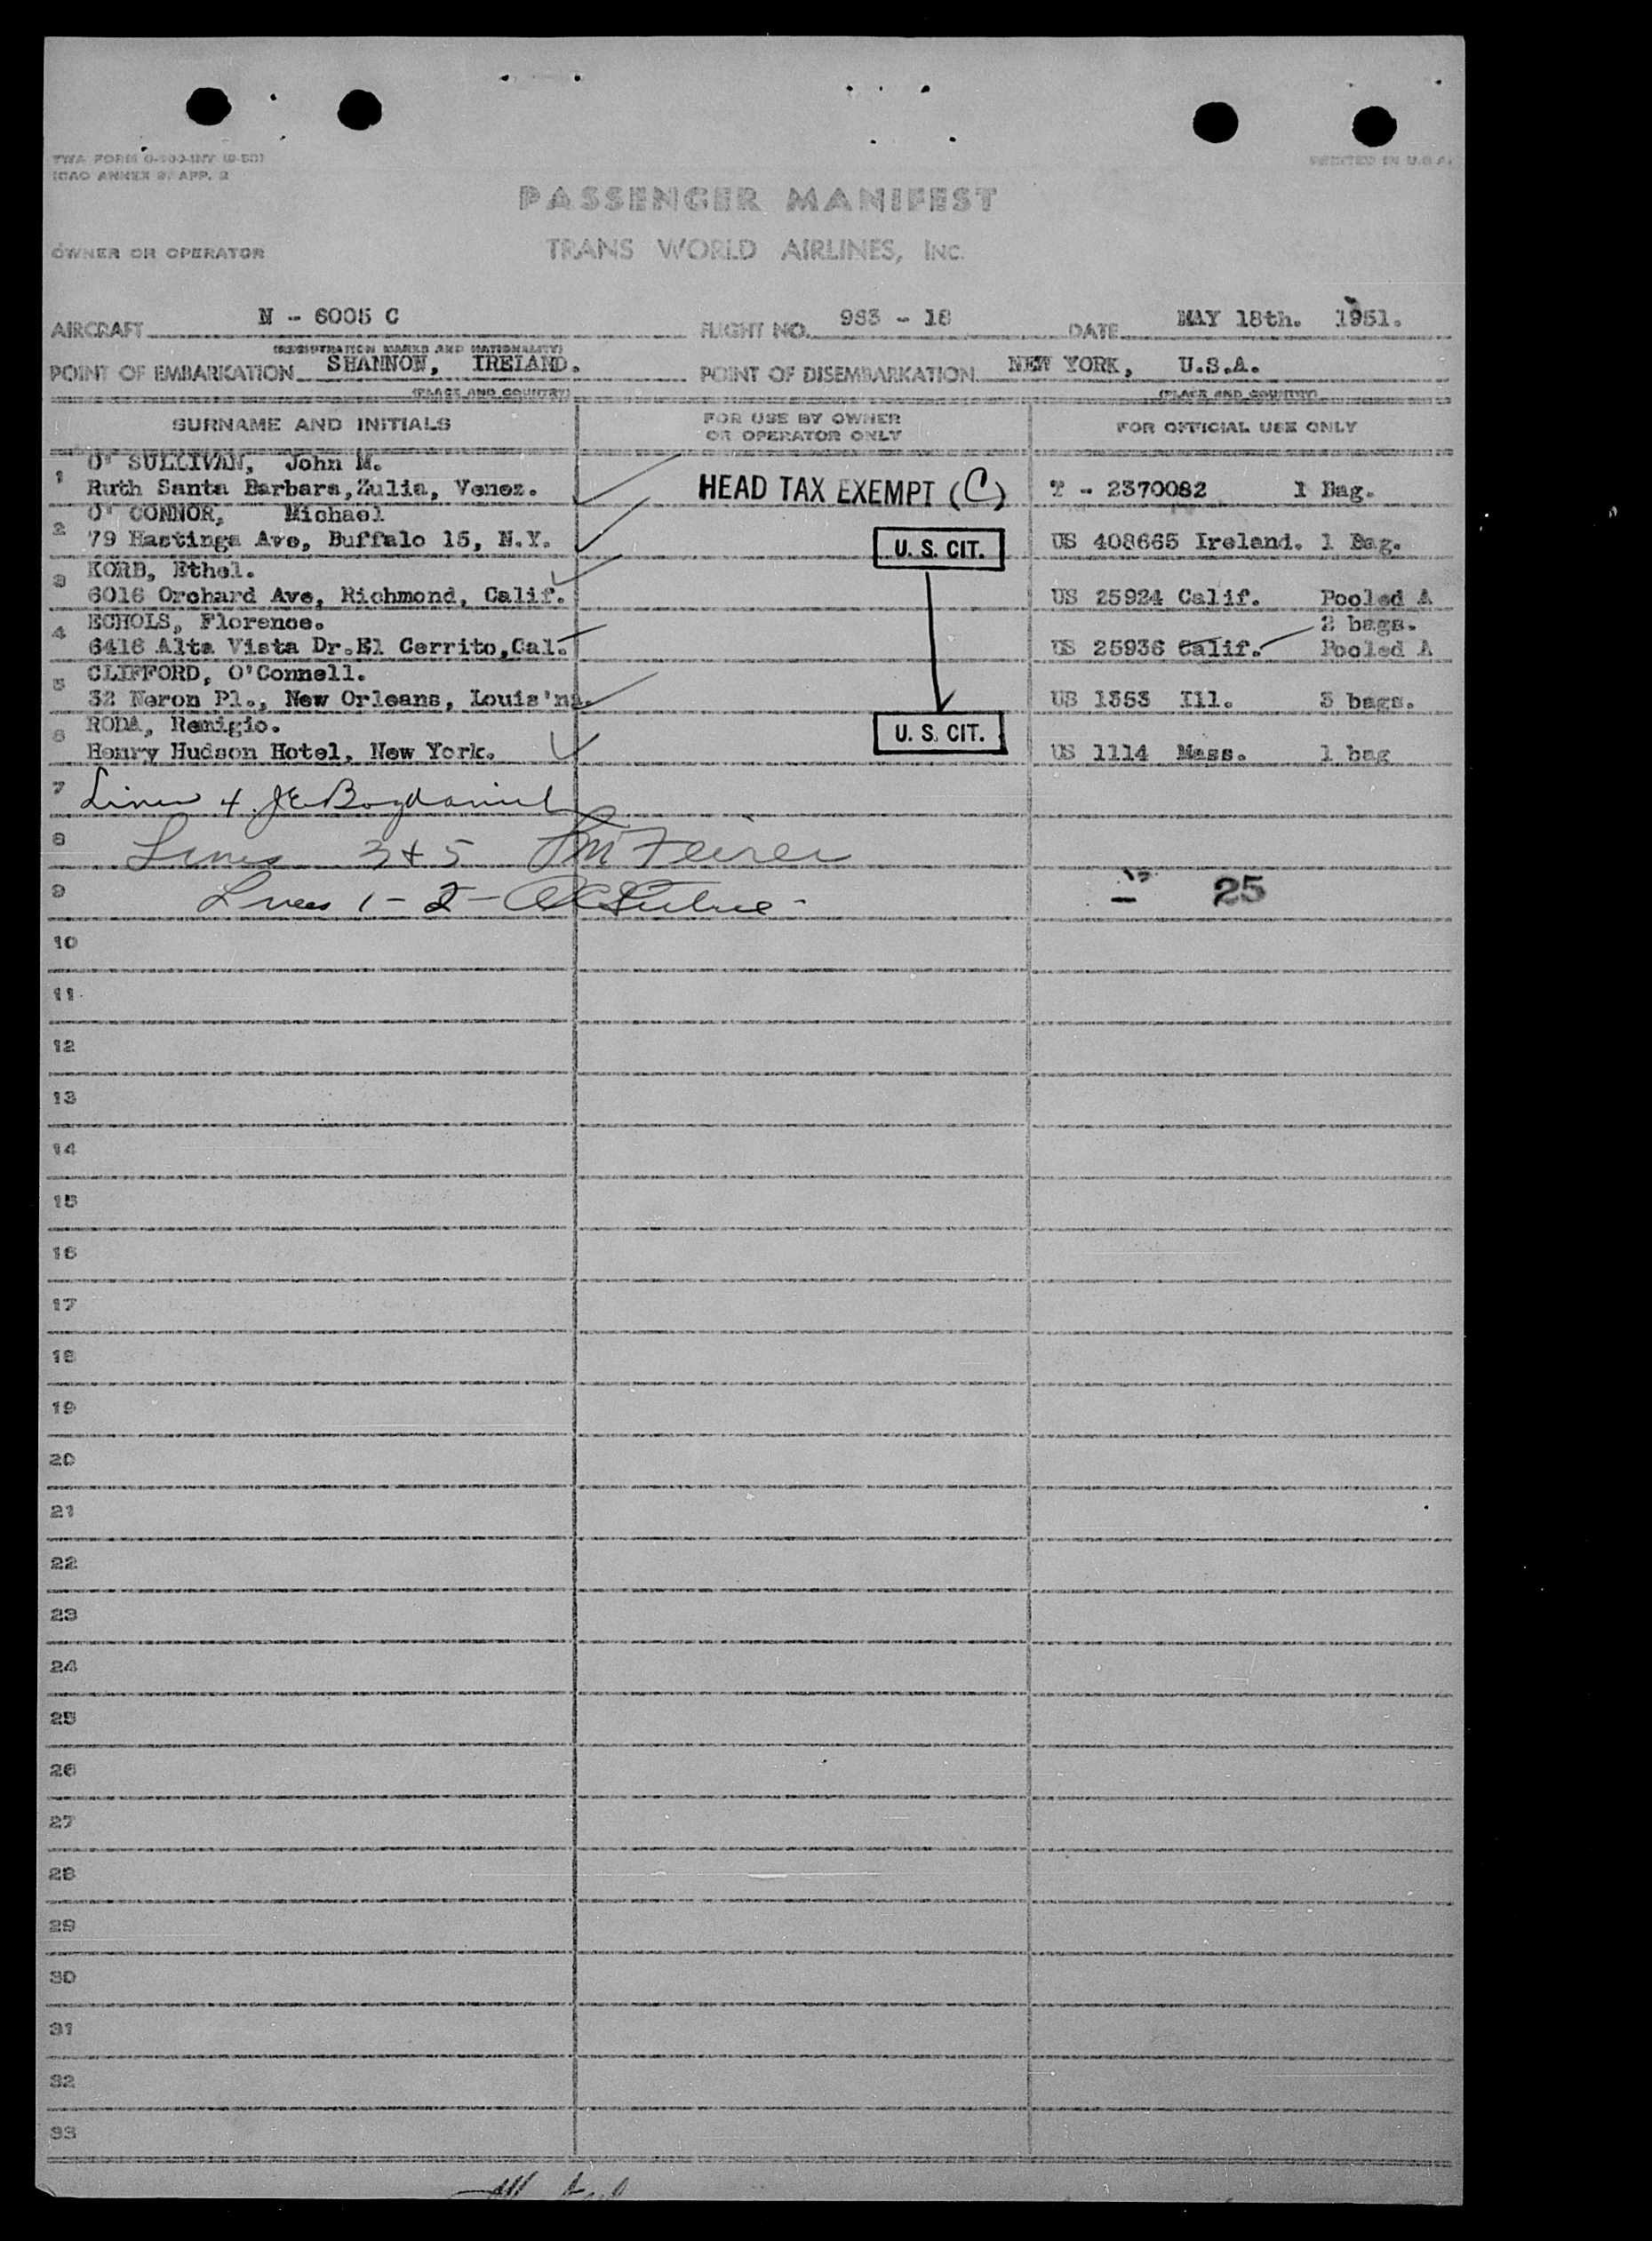 TWA FORM O-100-INT (9-50)
ICAO ANNEX 9, APP. 2
PRINTED IN U.S.A.
PASSENGER MANIFEST
OWNER OR OPERATOR TRANS WORLD AIRLINES, Inc.
AIRCRAFT N - 6005 C FLIGHT NO. 983 - 18 DATE MAY 18th. 1951.
(REGISTRATION MARKS AND NATIONALITY)
POINT OF EMBARKATION SHANNON, IRELAND. POINT OF DISEMBARKATION NEW YORK, U.S.A.
(PLACE AND COUNTRY) (PLACE AND COUNTRY)
SURNAME AND INITIALS FOR USE BY OWNER OR OPERATOR ONLY FOR OFFICIAL USE ONLY
1 O' SULLIVAN, John M.
Ruth Santa Barbara, Zulia, Venez. HEAD TAX EXEMPT (C) T - 2370082 1 Bag.
2 O' CONNOR, Michael
79 Hastings Ave, Buffalo 15, N.Y. U. S. CIT. US 408665 Ireland. 1 Bag.
3 KORB, Ethel.
6016 Orchard Ave, Richmond, Calif. US 25924 Calif. Pooled A
4 ECHOLS, Florence. 2 bags.
6416 Alta Vista Dr. El Cerrito, Cal. US 25936 Calif. Pooled A
5 CLIFFORD, O'Connell.
32 Neron Pl., New Orleans, Louis'na. US 1353 Ill. 3 bags.
6 RODA, Remigio.
Henry Hudson Hotel, New York. U. S. CIT. US 1114 Mass. 1 bag
7 Line 4
8 Lines 3 & 5
9 Lines 1 - 2 - 25
10
11
12
13
14
15
16
17
18
19
20
21
22
23
24
25
26
27
28
29
30
31
32
33